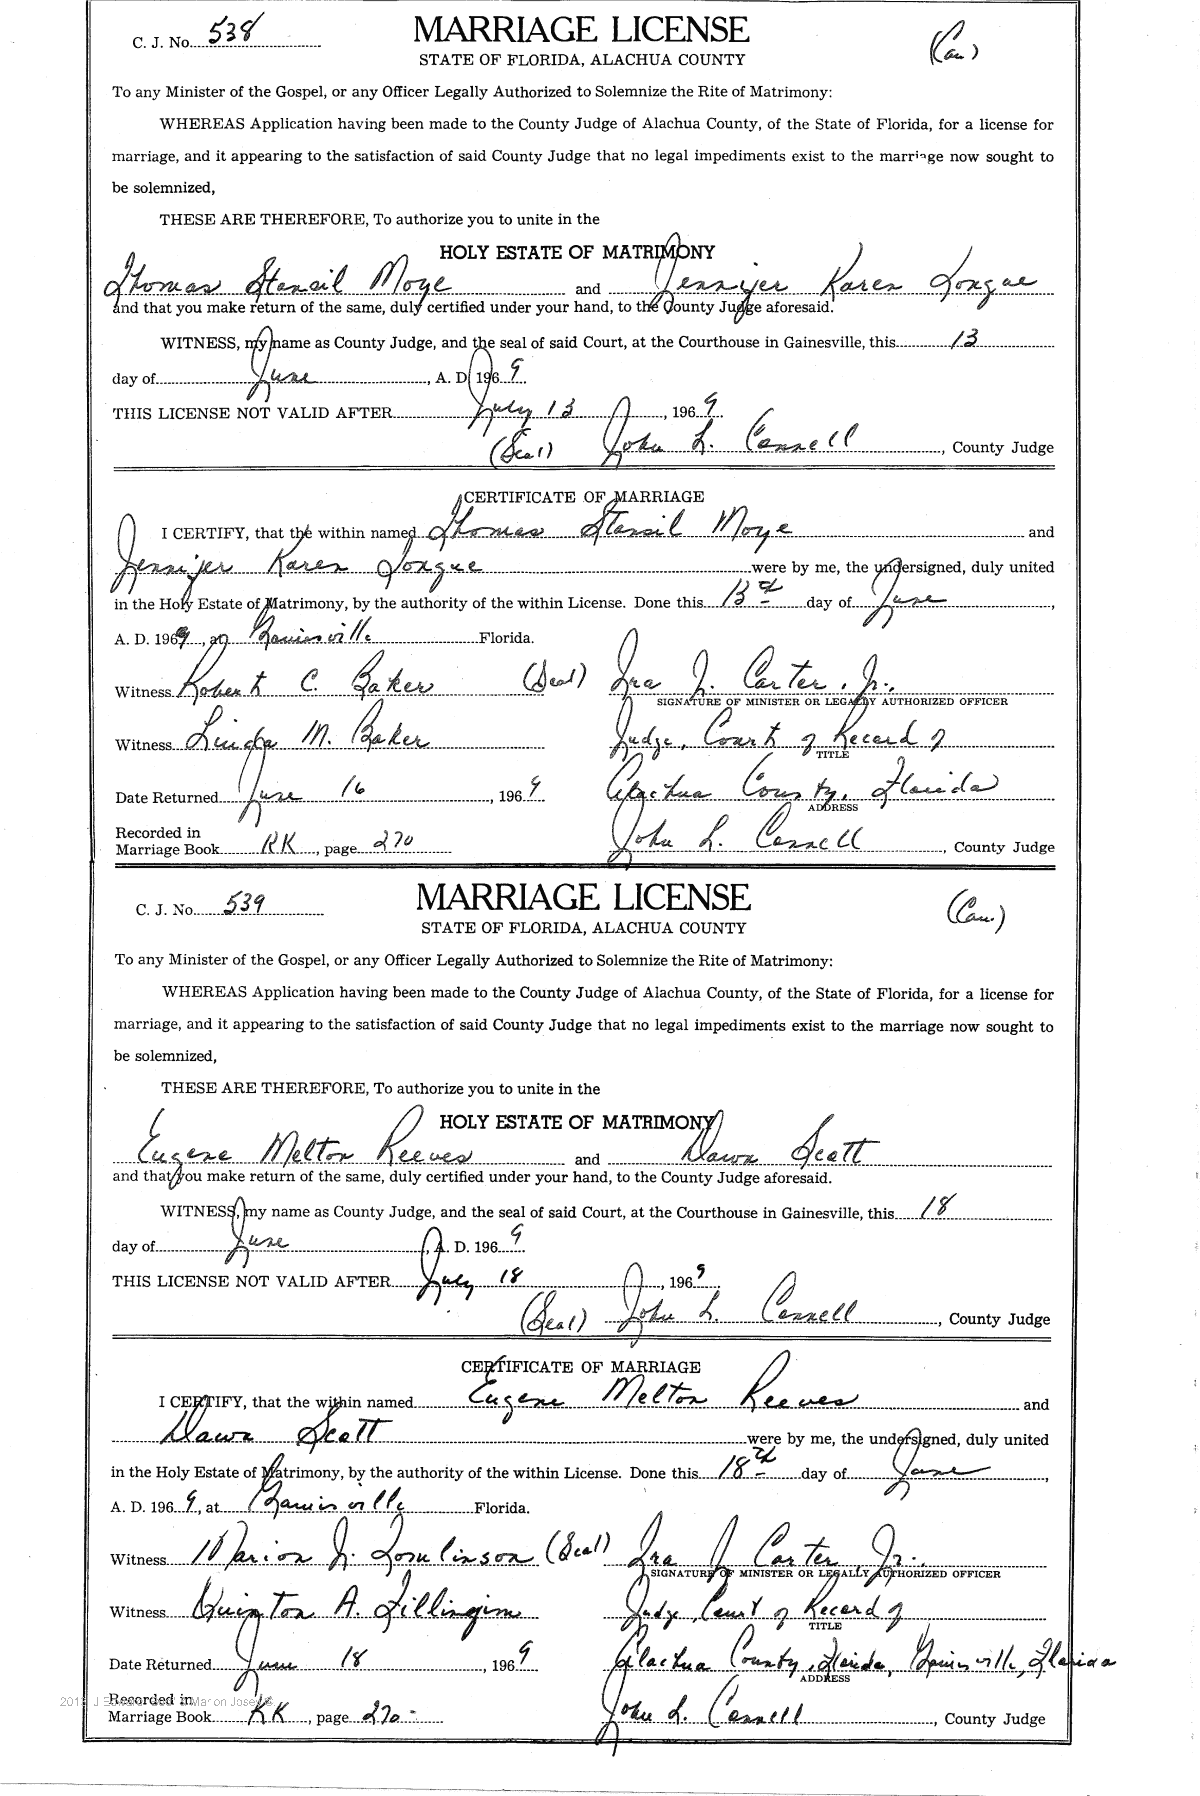 C. J. No. 538
MARRIAGE LICENSE
(Cau)
STATE OF FLORIDA, ALACHUA COUNTY
To any Minister of the Gospel, or any Officer Legally Authorized to Solemnize the Rite of Matrimony:
WHEREAS Application having been made to the County Judge of Alachua County, of the State of Florida, for a license for
marriage, and it appearing to the satisfaction of said County Judge that no legal impediments exist to the marriage now sought to
be solemnized,
THESE ARE THEREFORE, To authorize you to unite in the
HOLY ESTATE OF MATRIMONY
Thomas Stansil Moye and Jennifer Karen Tongue
and that you make return of the same, duly certified under your hand, to the County Judge aforesaid.
WITNESS, my name as County Judge, and the seal of said Court, at the Courthouse in Gainesville, this 13
day of June, A. D. 1969.
THIS LICENSE NOT VALID AFTER July 13, 1969.
(Seal) John L. Connell, County Judge
CERTIFICATE OF MARRIAGE
I CERTIFY, that the within named Thomas Stansil Moye and
Jennifer Karen Tongue were by me, the undersigned, duly united
in the Holy Estate of Matrimony, by the authority of the within License. Done this 13th day of June,
A. D. 1969, at Gainesville Florida.
Witness Robert C. Baker (Seal) Ira J. Carter, Jr.,
SIGNATURE OF MINISTER OR LEGALLY AUTHORIZED OFFICER
Witness Linda M. Baker Judge, Court of Record of
TITLE
Date Returned June 16, 1969 Alachua County, Florida
ADDRESS
Recorded in
Marriage Book KK, page 270 John L. Connell, County Judge
C. J. No. 539
MARRIAGE LICENSE
(Cau.)
STATE OF FLORIDA, ALACHUA COUNTY
To any Minister of the Gospel, or any Officer Legally Authorized to Solemnize the Rite of Matrimony:
WHEREAS Application having been made to the County Judge of Alachua County, of the State of Florida, for a license for
marriage, and it appearing to the satisfaction of said County Judge that no legal impediments exist to the marriage now sought to
be solemnized,
THESE ARE THEREFORE, To authorize you to unite in the
HOLY ESTATE OF MATRIMONY
Eugene Melton Reeves and Dawn Scott
and that you make return of the same, duly certified under your hand, to the County Judge aforesaid.
WITNESS, my name as County Judge, and the seal of said Court, at the Courthouse in Gainesville, this 18
day of June, A. D. 1969.
THIS LICENSE NOT VALID AFTER July 18, 1969.
(Seal) John L. Connell, County Judge
CERTIFICATE OF MARRIAGE
I CERTIFY, that the within named Eugene Melton Reeves and
Dawn Scott were by me, the undersigned, duly united
in the Holy Estate of Matrimony, by the authority of the within License. Done this 18th day of June,
A. D. 1969, at Gainesville Florida.
Witness Marion J. Tomlinson (Seal) Ira J Carter, Jr.
SIGNATURE OF MINISTER OR LEGALLY AUTHORIZED OFFICER
Witness Quinton A. Fillingim Judge, Court of Record of
TITLE
Date Returned June 18, 1969 Alachua County, Florida, Gainesville, Florida
ADDRESS
Recorded in
Marriage Book KK, page 270 John L. Connell, County Judge